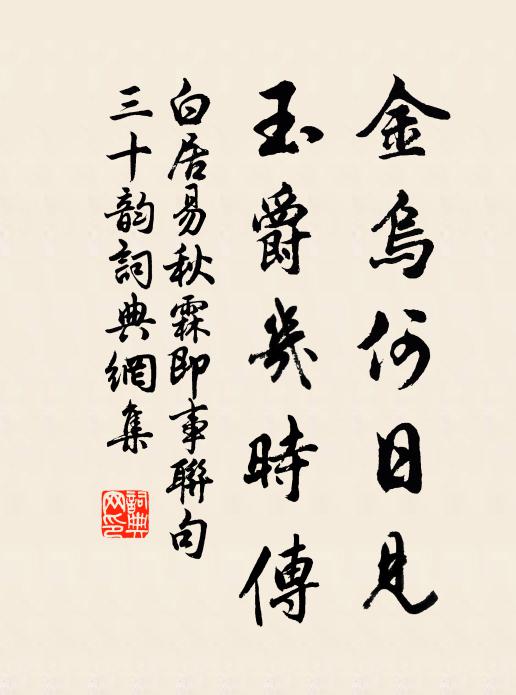 金烏何日見
玉爵幾時傳
白居易秋霖即事聯句
三十韵詞典網集
詞典网印